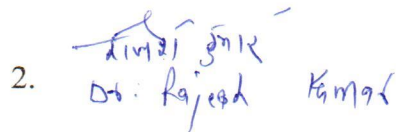 राजेश कुमार
2. Dr. Rajesh Kumar